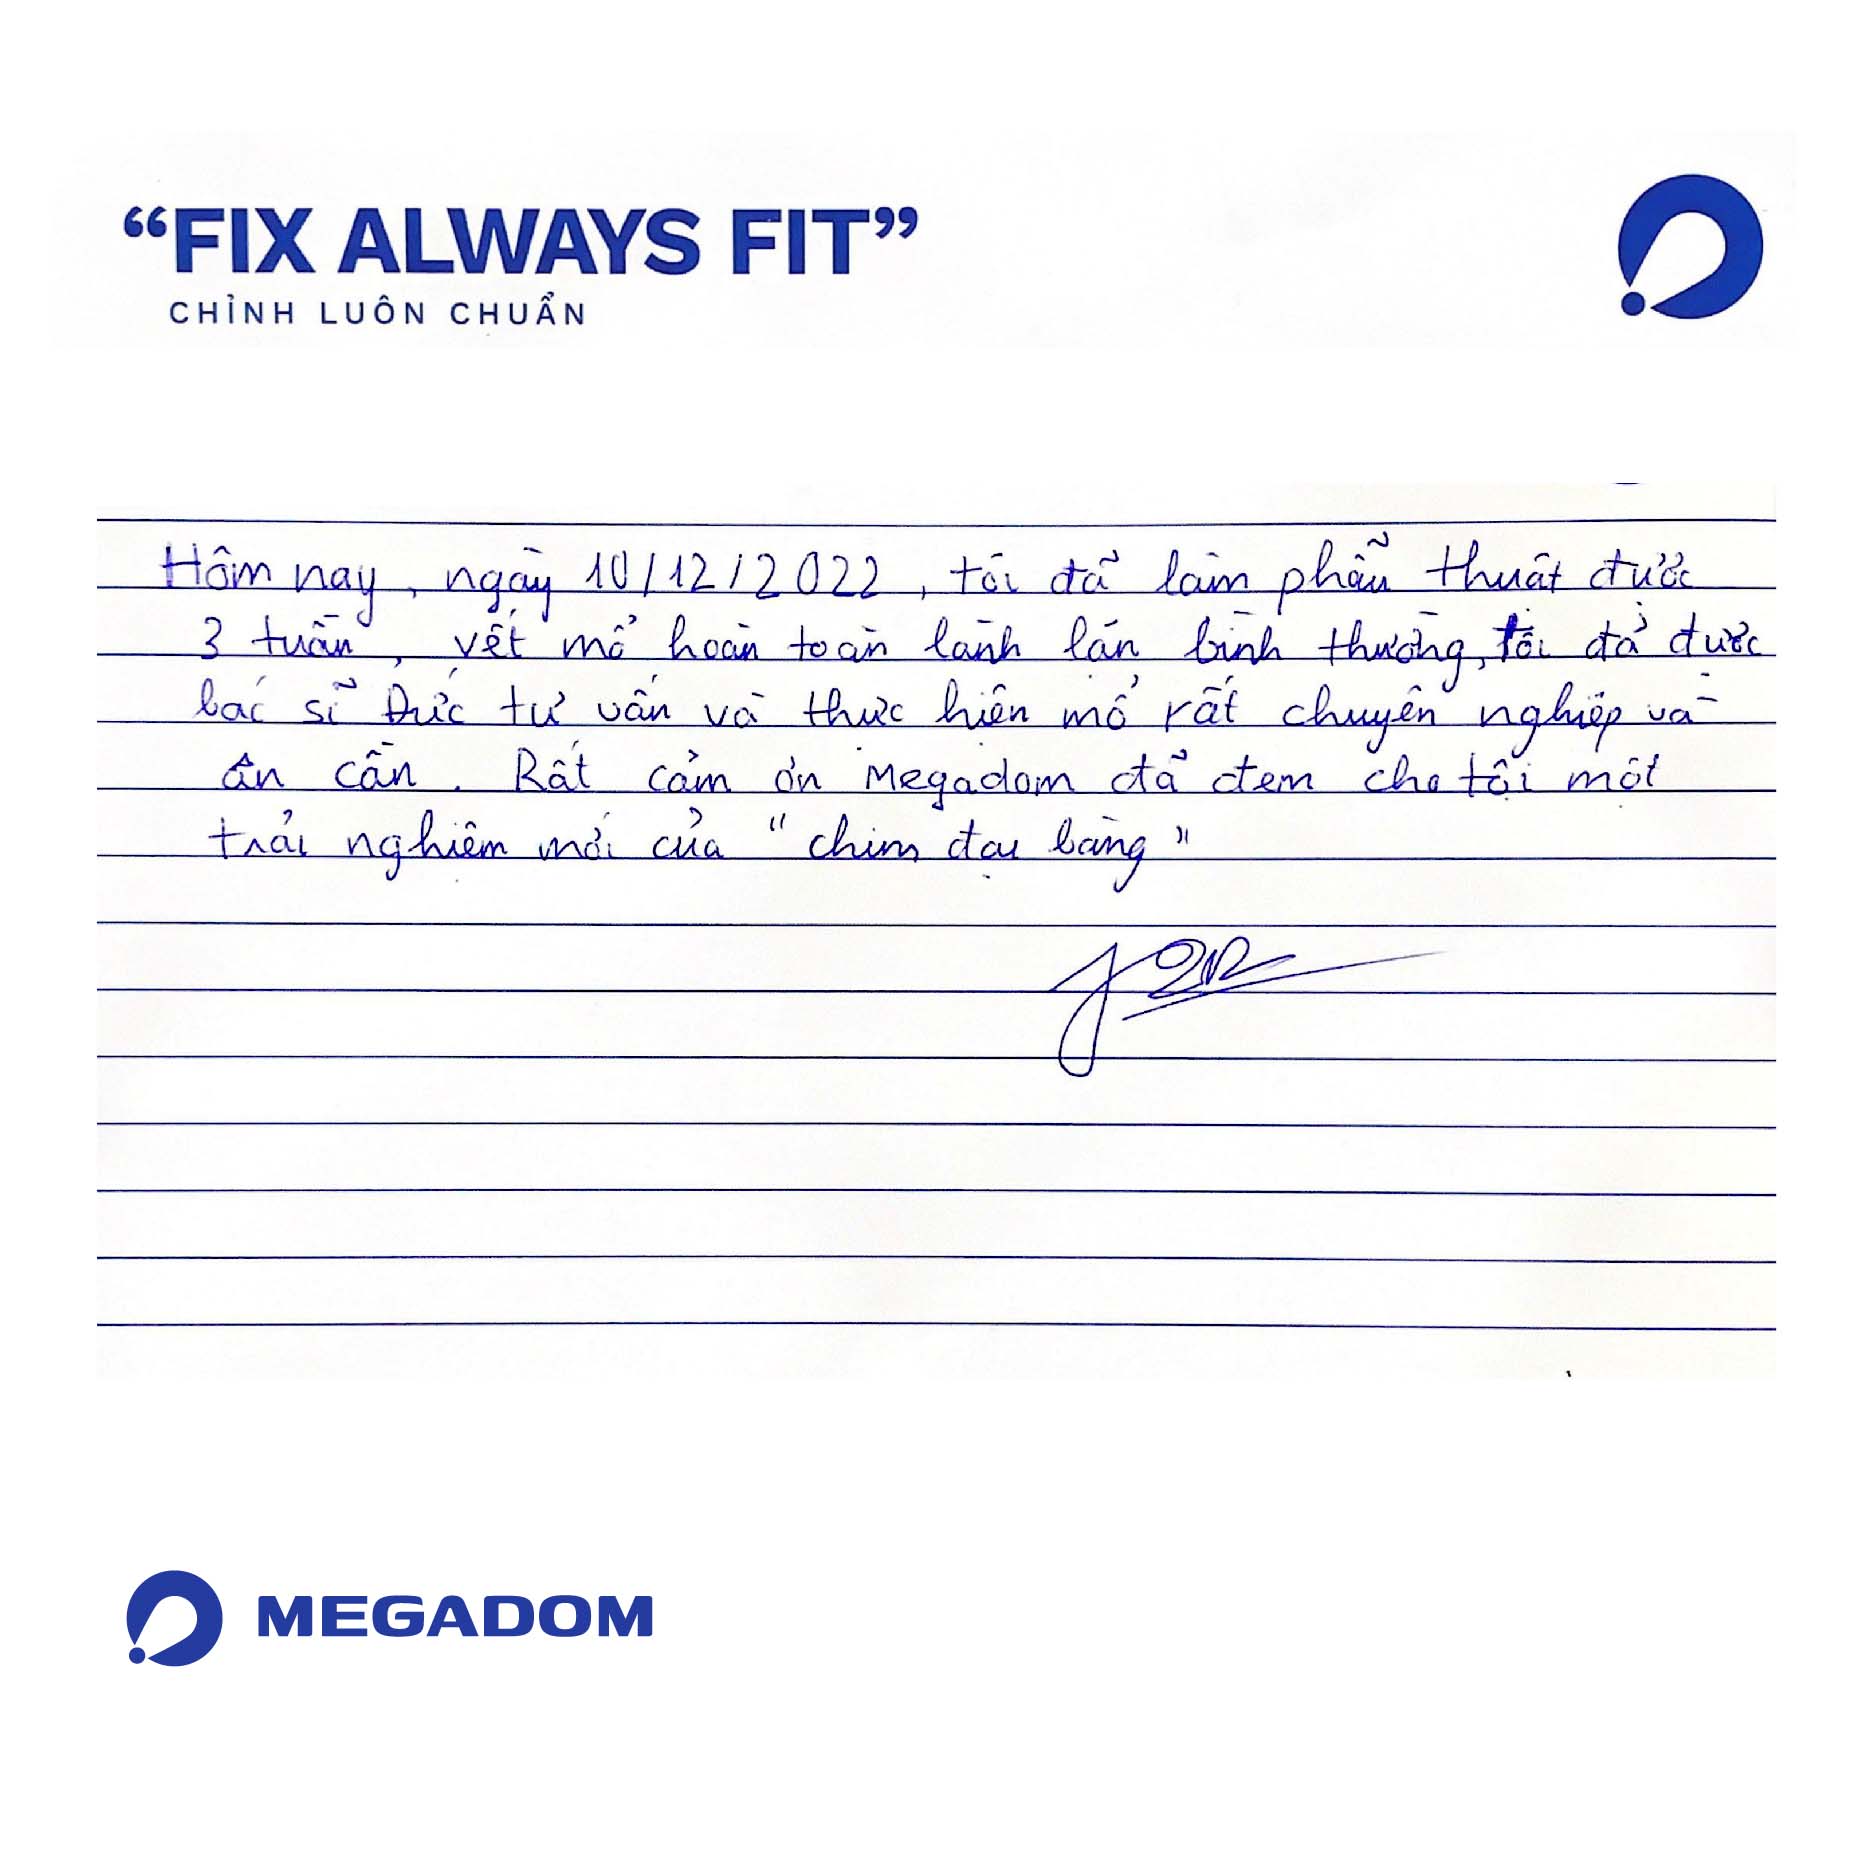 “FIX ALWAYS FIT”
CHỈNH LUÔN CHUẨN
Hôm nay, ngày 10/12/2022, tôi đã làm phẫu thuật được
3 tuần, vết mổ hoàn toàn lành lặn bình thường, tôi đả được
bác sĩ Đức tư vấn và thực hiện mổ rất chuyên nghiệp và
ân cần. Rất cảm ơn Megadom đả đem cho tôi một
trải nghiệm mới của “chim đại bàng”
MEGADOM